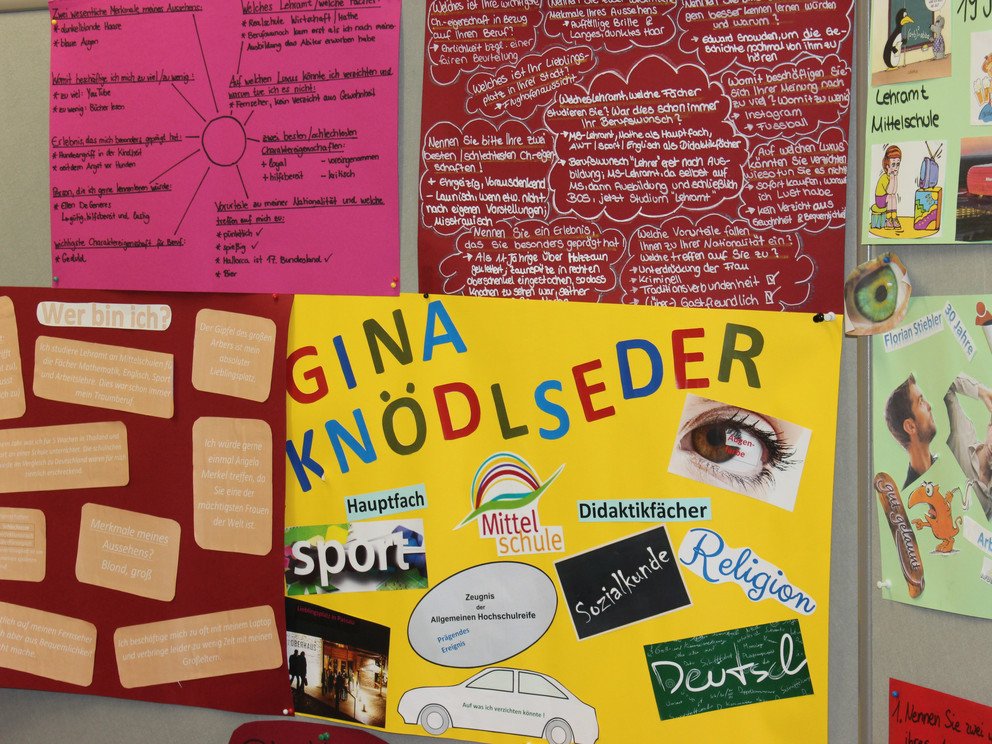 Zwei wesentliche Merkmale meines Aussehens:
• dunkelblonde Haare
• blaue Augen
Womit beschäftige ich mich zu viel / zu wenig:
• zu viel: YouTube
• zu wenig: Bücher lesen
Erlebnis, das mich besonders geprägt hat:
• Hundeangriff in der Kindheit
• seitdem Angst vor Hunden
Person, die ich gerne kennenlernen würde:
• Ellen DeGeneres
Lustig, hilfsbereit und
wichtigste Charaktereigenschaft für Beruf:
• Geduld
Welches Lehramt / welche Fächer:
• Realschule Wirtschaft / Mathe
• Berufswunsch kam erst als ich nach meiner
Ausbildung das Abitur erworben habe
Auf welchen Luxus könnte ich verzichten und
warum tue ich es nicht:
• Fernseher, kein Verzicht aus Gewohnheit
zwei besten / schlechtesten
Charaktereigenschaften:
+ loyal - voreingenommen
+ hilfsbereit - kritisch
Vorurteile zu meiner Nationalität und welche
treffen auf mich zu:
• pünktlich ✓
• spießig ✓
• Mallorca ist 17. Bundesland ✓
• Bier
Welches ist Ihre wichtigste
Ch-eigenschaft in Bezug
auf Ihren Beruf?
→ Ehrlichkeit bzgl. einer
fairen Beurteilung
Merkmale Ihres Aussehens?
→ Auffällige Brille &
Langes, dunkles Haar
gern besser kennen lernen
und warum?
→ Edward Snowden, um die Ge-
schichte nochmal von ihm zu
hören
Welches ist Ihr Lieblings-
platz in Ihrer Stadt?
→ Flughafenaussicht
Welches Lehramt, welche Fächer
studieren Sie? War dies schon immer
Ihr Berufswunsch?
→ MS-Lehramt, Mathe als Hauptfach,
AWT / Sport / Englisch als Didaktikfächer
→ Berufswunsch "Lehrer" erst nach Aus-
bildung; MS-Lehramt, da selbst auf
MS, dann Ausbildung und schließlich
BOS, jetzt Studium Lehramt
Womit beschäftigen Sie
sich Ihrer Meinung nach
zu viel? Womit zu wenig?
→ Instagram
→ Fussball
Nennen Sie bitte Ihre zwei
besten / schlechtesten Ch-eigen-
schaften!
+ Ehrgeizig, Vorausdenkend
- Launisch, wenn etw. nicht
nach eigenen Vorstellungen;
Misstrauisch
Auf welchen Luxus
könnten Sie verzichten
wieso tun Sie es nicht?
→ sofort kaufen, worauf
ich Lust habe
→ kein Verzicht aus
Gewohnheit & Bequemlichkeit
Nennen Sie ein Erlebnis,
das Sie besonders geprägt hat!
→ Als 11-jährige über Holzzaun
geklettert, Zaunspitze in rechten
Oberschenkel eingestochen, sodass
Knochen zu sehen war, seither
Welche Vorurteile fallen
Ihnen zu Ihrer Nationalität ein?
Welche treffen auf Sie zu?
→ Unterdrückung der Frau
→ Kriminell
→ Traditionsverbundenheit ☑
→ (Über-) Gastfreundlich ☑
Lehramt
Mittelschule
Wer bin ich?
Ich studiere Lehramt an Mittelschulen für
die Fächer Mathematik, Englisch, Sport
und Arbeitslehre. Dies war schon immer
mein Traumberuf.
Der Gipfel des großen
Arbers ist mein
absoluter
Lieblingsplatz.
Jahr war ich für 5 Wochen in Thailand und
dort an einer Schule unterrichtet. Die schulischen
im Vergleich zu Deutschland waren für mich
Ich würde gerne
einmal Angela
Merkel treffen, da
Sie eine der
mächtigsten Frauen
der Welt ist.
Merkmale meines
Aussehens?
Blond, groß
auf meinen Fernseher
aber aus Bequemlichkeit
nicht mache.
Ich beschäftige mich zu oft mit meinem Laptop
und verbringe leider zu wenig Zeit mit meinen
Großeltern.
GINA
KNÖDLSEDER
Augen-
Hauptfach
Mittel
schule
Didaktikfächer
sport
Zeugnis
der
Allgemeinen Hochschulreife
Prägendes
Ereignis
Sozialkunde
Religion
Lieblingsplatz in Passau
OBERHAUS
Auf was ich verzichten könnte!
Deutsch
Florian Stiebler
30 Jahre
gut gelaunt
1. Nennen Sie zwei